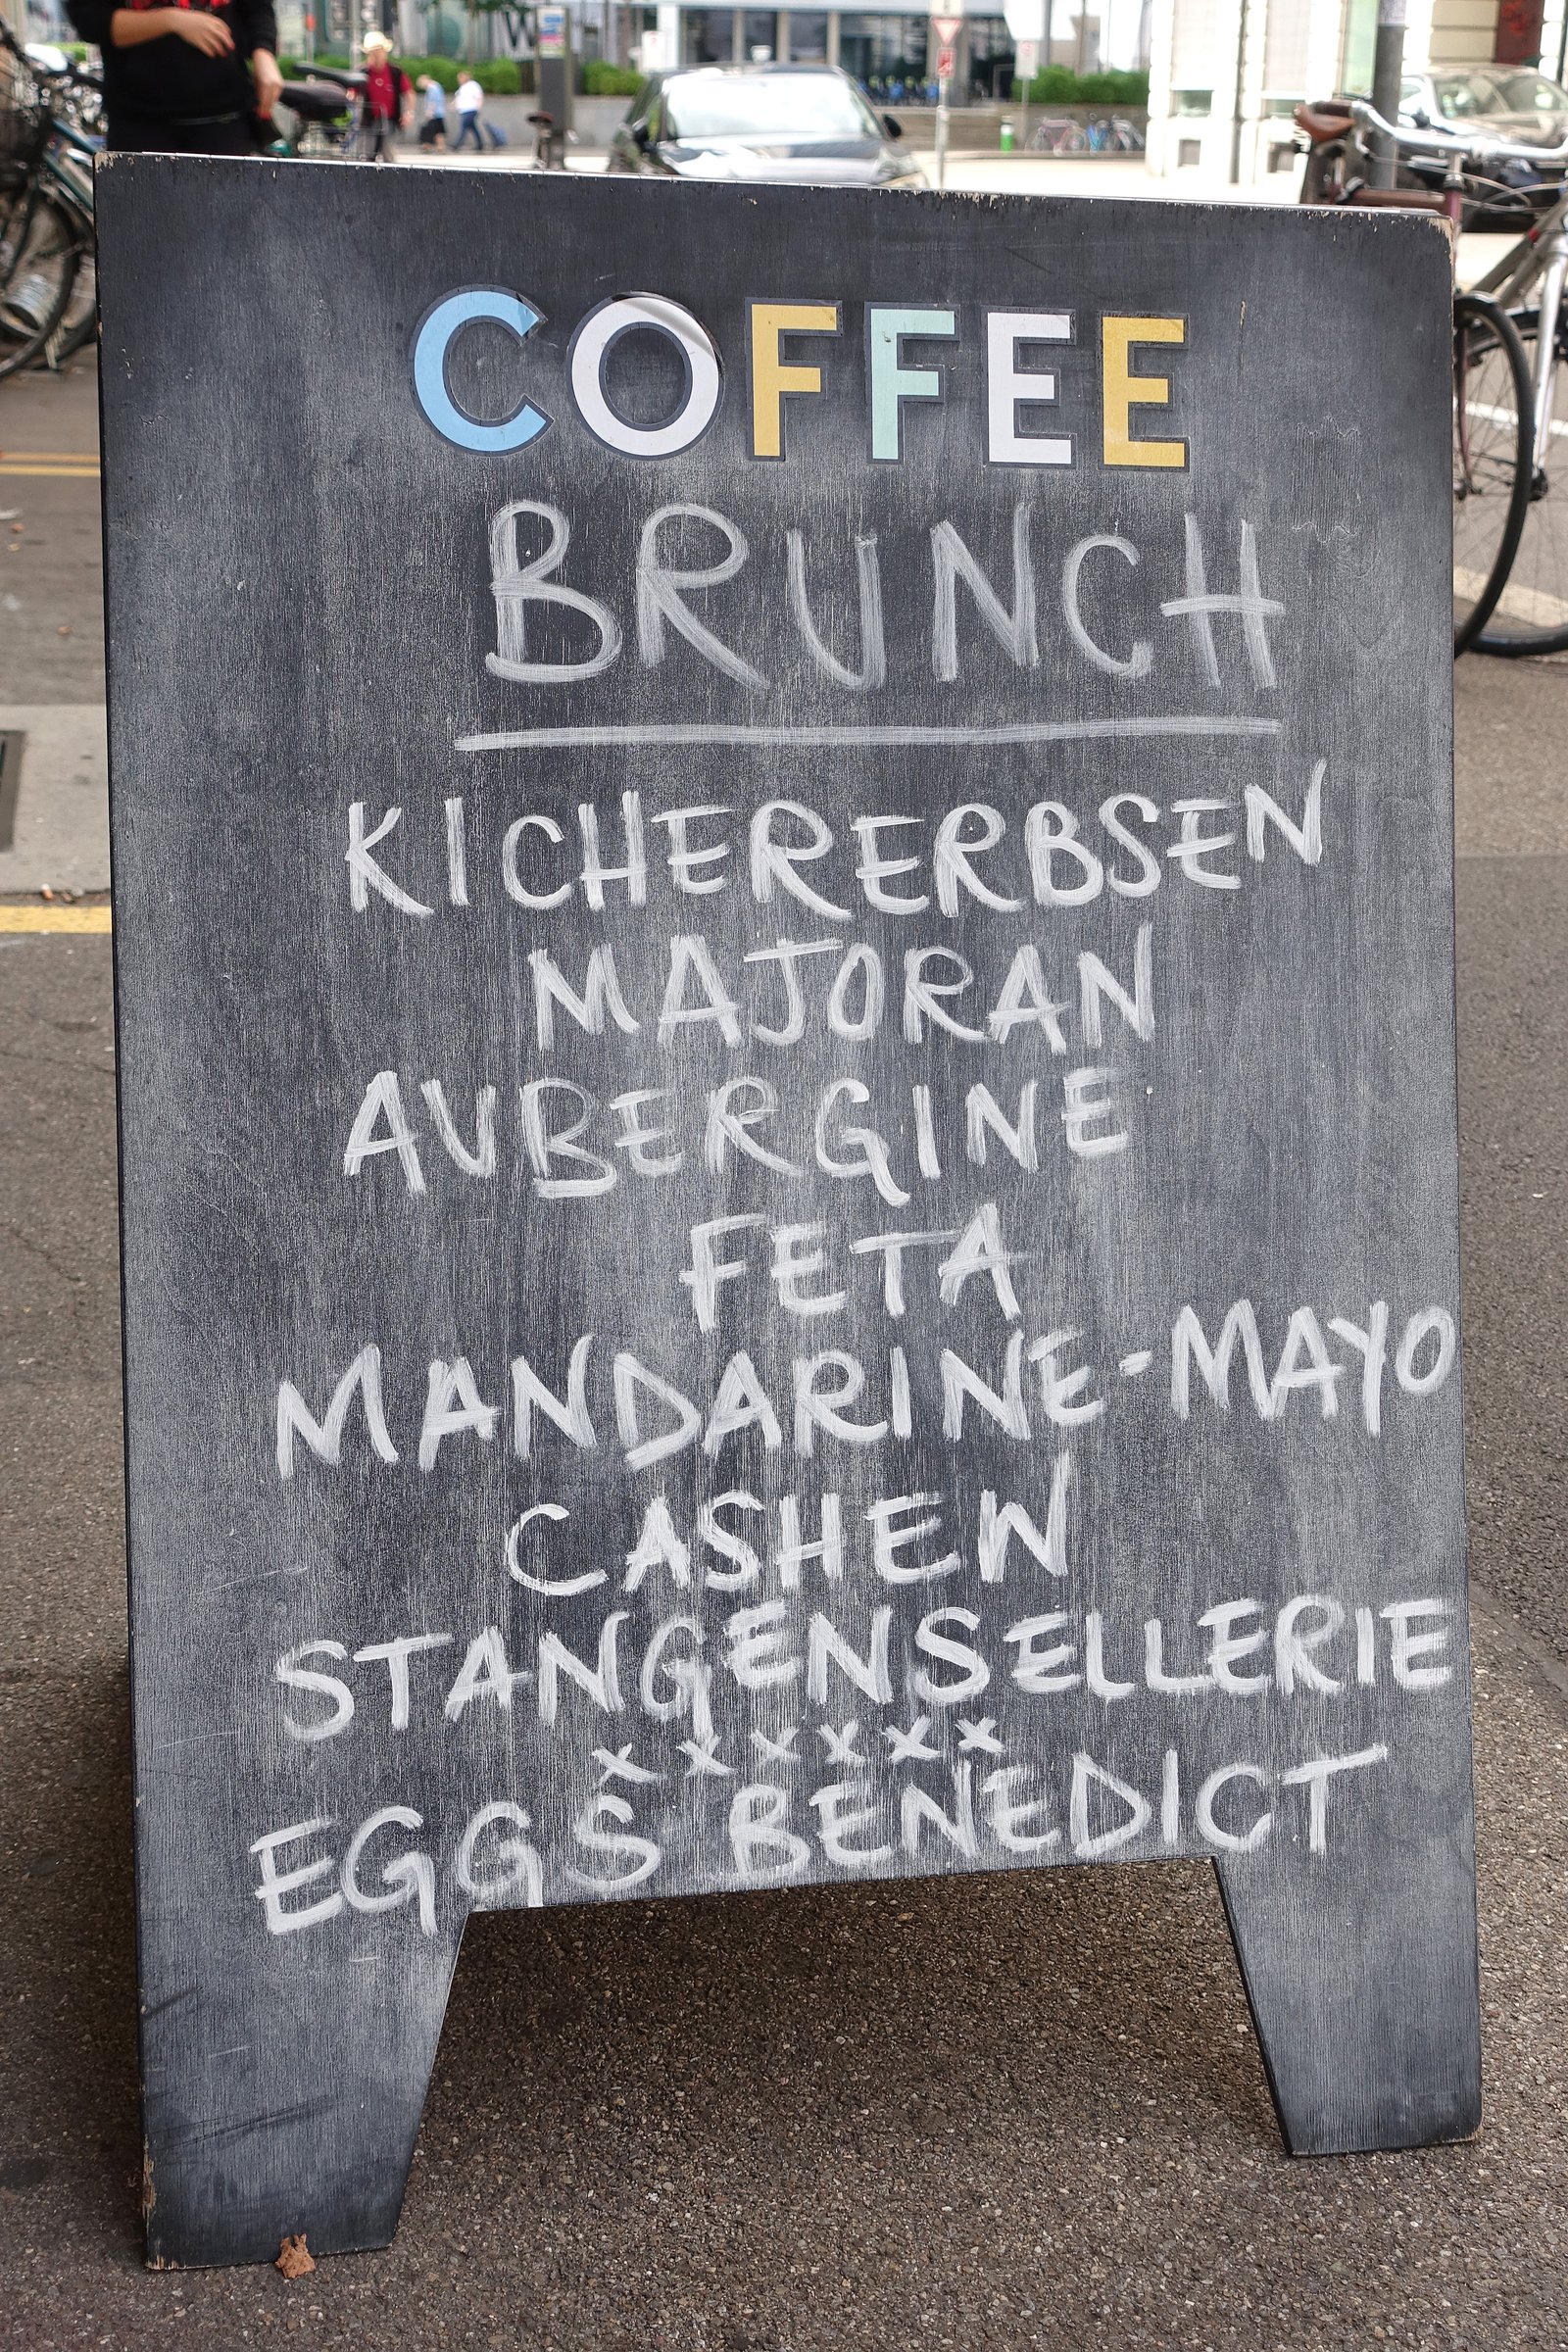 COFFEE
BRUNCH
KICHERERBSEN
MAJORAN
AUBERGINE
FETA
MANDARINE-MAYO
CASHEW
STANGENSELLERIE
xxxxxx
EGGS BENEDICT